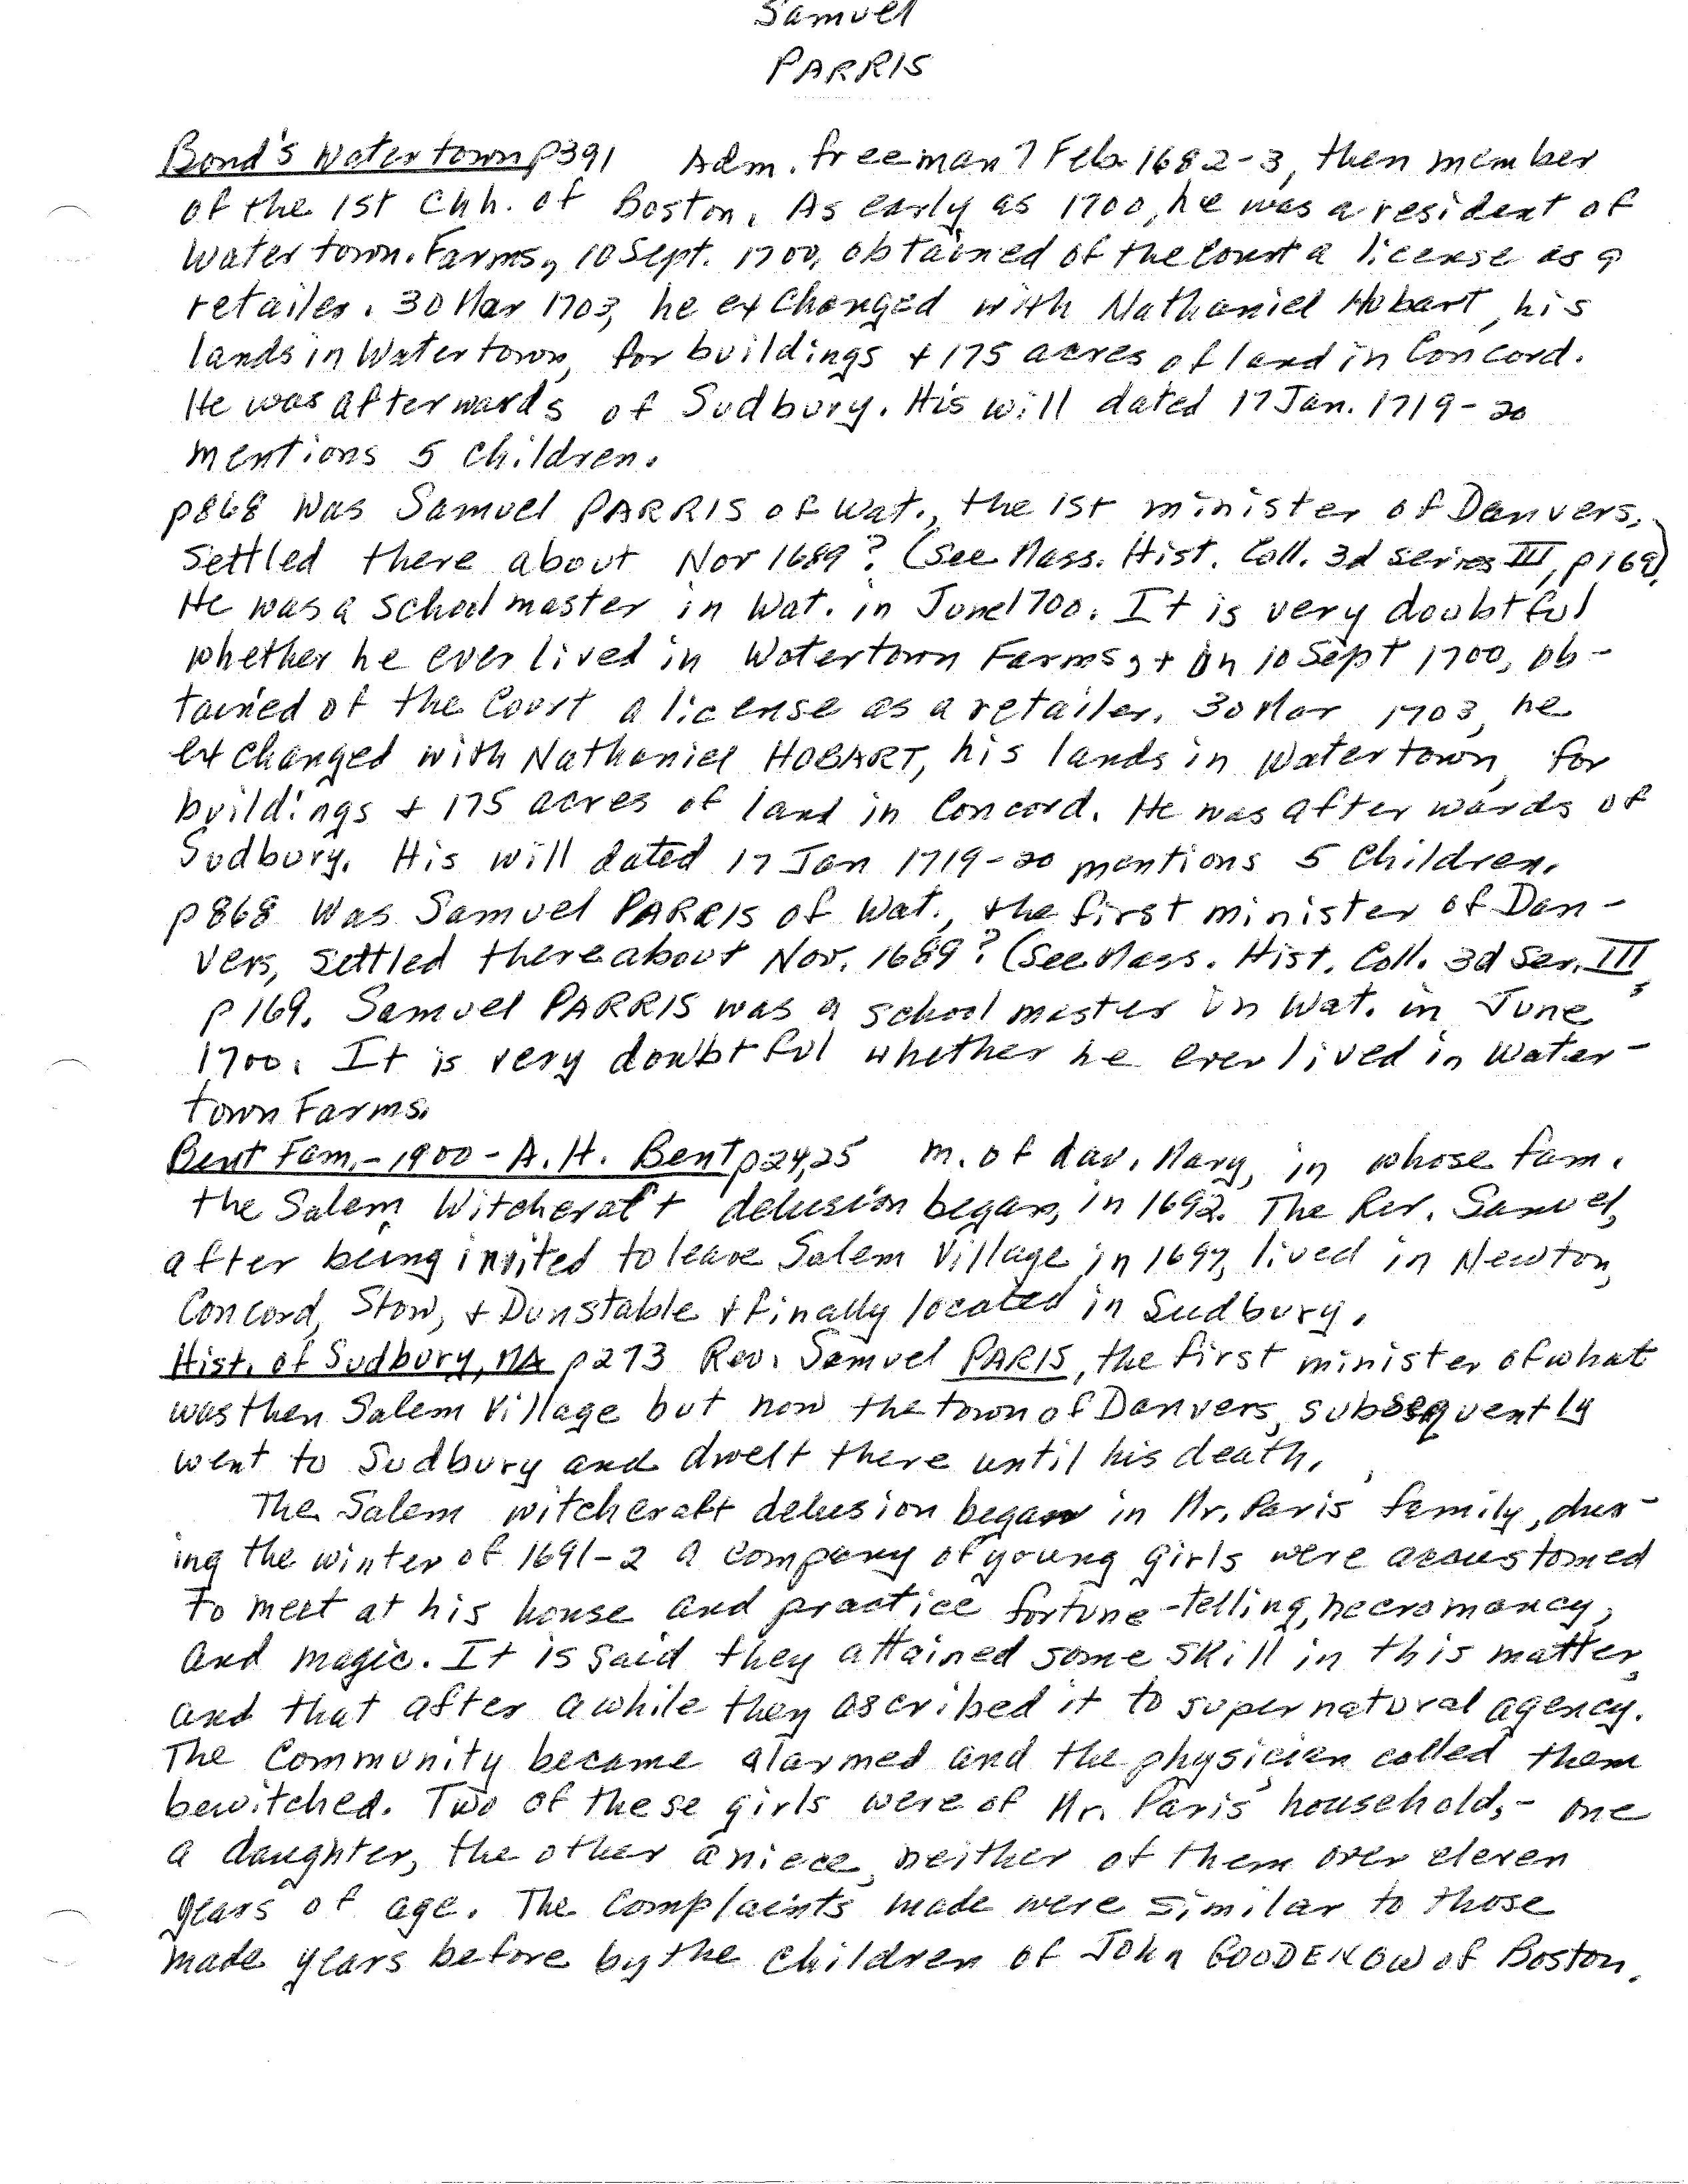 Samuel
PARRIS
Bond's Watertown p391 Adm. freeman 7 Feb. 1682-3, then member
of the 1st Chh. of Boston. As early as 1700, he was a resident of
Watertown. Farms, 10 Sept. 1700, obtained of the Court a license as a
retailer. 30 Mar 1703, he exchanged with Nathaniel Hobart, his
lands in Watertown, for buildings + 175 acres of land in Concord.
He was afterwards of Sudbury. His will dated 17 Jan. 1719-20
mentions 5 children.
p868 Was Samuel PARRIS of Wat., the 1st minister of Danvers,
settled there about Nov 1689? (See Mass. Hist. Coll. 3d series III, p169).
He was a schoolmaster in Wat. in June 1700. It is very doubtful
whether he ever lived in Watertown Farms, + on 10 Sept 1700, ob-
tained of the Court a license as a retailer. 30 Mar 1703, he
exchanged with Nathaniel HOBART, his lands in Watertown, for
buildings + 175 acres of land in Concord. He was afterwards of
Sudbury. His will dated 17 Jan 1719-20 mentions 5 children.
p868 Was Samuel PARRIS of Wat., the first minister of Dan-
vers, settled there about Nov. 1689? (See Mass. Hist. Coll. 3d Ser. III,
p169. Samuel PARRIS was a school master in Wat. in June
1700. It is very doubtful whether he ever lived in Water-
town Farms.
Bent Fam. - 1900 - A. H. Bent p24,25 m. of dau. Mary, in whose fam.
the Salem Witchcraft delusion began, in 1692. The Rev. Samuel,
after being invited to leave Salem Village in 1697, lived in Newton,
Concord, Stow, + Dunstable + finally located in Sudbury.
Hist. of Sudbury, MA p273 Rev. Samuel PARIS, the first minister of what
was then Salem Village but now the town of Danvers, subsequently
went to Sudbury and dwelt there until his death.
The Salem witchcraft delusion began in Mr. Paris' family, dur-
ing the winter of 1691-2 a company of young girls were acoustomed
to meet at his house and practice fortune-telling, necromancy,
and magic. It is said they attained some skill in this matter,
and that after awhile they ascribed it to supernatural agency.
The community became alarmed and the physician called them
bewitched. Two of these girls were of Mr. Paris' household, - one
a daughter, the other a niece, neither of them over eleven
years of age. The complaints made were similar to those
made years before by the children of John GOODENOW of Boston.